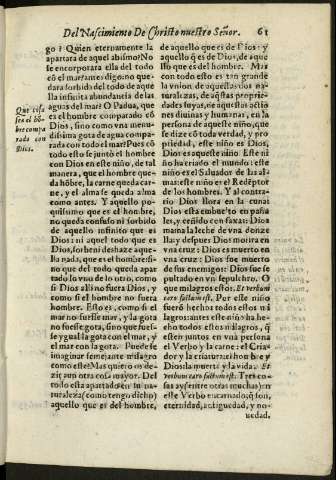 Del Nascimiento De Christo nuestro Señor. 61
go? Quien eternamente la
apartara de aquel abismo? No
se encorporara ella del todo
cõ el mar? antes digo: no que-
dara sorbida del todo de aque
lla infinita abundancia de las
aguas del mar? O Padua, que
es el hombre comparado cõ
Dios, sino como vna menu-
dissima gota de agua compa-
rada con todo el mar? Pues cõ
todo esso se juntó el hombre
con Dios en este niño, mas de
tal manera, que el hombre que
da hõbre, la carne queda car-
ne, y el alma se queda alma
como antes. Y aquello po-
quissimo que es el hombre, no
queda confuso ni sorbido
de aquello infinito que es
Dios: ni aquel todo que es
Dios, sorbe ni deshaze aque-
lla nada, que es el hombre: si-
no que del todo queda apar-
tado lo vno de lo otro, como
si Dios allí no fuera Dios, y
como si el hombre no fuera
hombre. Esto es, como si el
mar no fuesse mar, y la gota
no fuesse gota, sino que fues-
se ygual la gota con el mar, y
el mar con la gota. Puedese
imaginar semejante milagro
como este? Mas quiero os de-
zir aun otra cosa mayor. Del
todo esta apartado en su na-
turaleza (como tengo dicho)
aquello que es del hombre,
Que cosa
sea el hõ-
bre compa
rado con
Dios.
de aquello que es de Dios: y
aquello q̃ es de Dios, de aque
llo que es del hombre. Mas
con todo esto es tan grande
la vnion de aquestas dos na-
turalezas, de aq̃stas proprie-
dades suyas, de aquestas actio
nes diuinas y humanas, en la
persona de aqueste niño, que
se dize cõ toda verdad, y pro
priedad, este niño es Dios:
Dios es aqueste niño. Este ni
ño ha criado el mundo: este
niño es el Saluador de las al-
mas: este niño es el Redẽptor
de los hombres. Y al contra-
rio Dios llora en la cuna:
Dios está embuelto en paña
les, y ceñido con faxas: Dios
mama leche de vna donze
lla, y despues Dios morirá en
vna cruz: Dios es muerto en
vna cruz: Dios fue muerto
de sus enemigos: Dios fue se
pultado en vn sepulchro. O
que milagros estos. Et verbum
caro factum est. Por este niño
fueró hechos todos estos mi
lagros: antes este niño ha he-
cho todos estos milagros, q̃
estén juntos en vna persona
el Verbo y la carne: el Cria-
dor y la criatura: el hombre y
Dios: la muerte y la vida. Et
verbum caro factum est. Tres co-
sas ay (entre otras muchas) en
este Verbo encarnado, q̃ son,
eternidad, antiguedad, y no-
uedad.